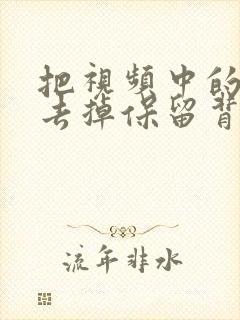 把視頻中的
去掉保留背
流年非水